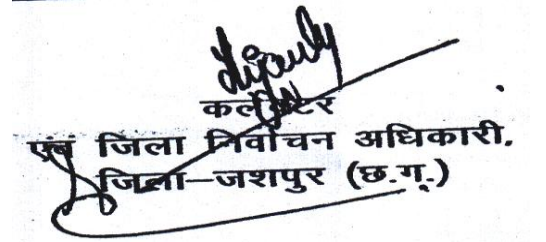 कलेक्टर
एवं जिला निर्वाचन अधिकारी.
जिला–जशपुर (छ.ग.)